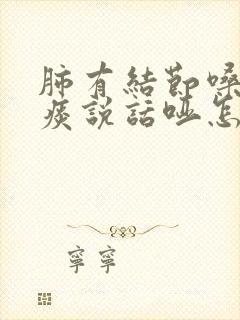 肺有結節嗓
痰説話啞怎
寧寧